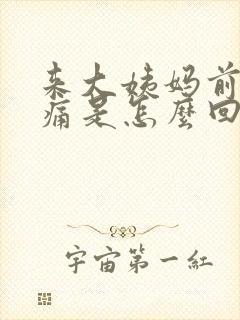 来大姨妈前
痛是怎麼回
宇宙第一紅